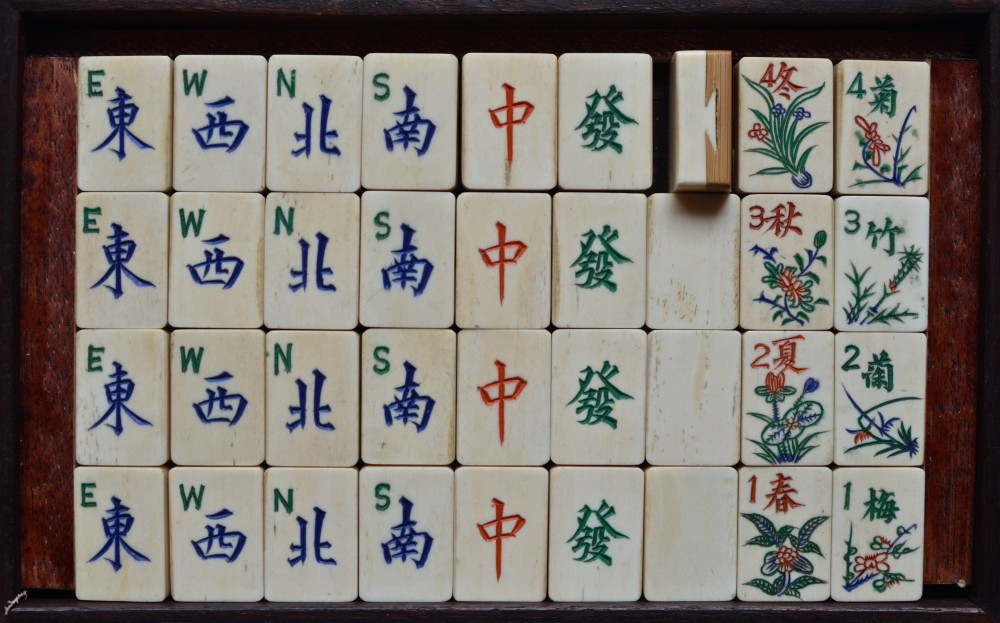 E 東 W 西 N 北 S 南 中 發 4 冬 4 菊
E 東 W 西 N 北 S 南 中 發 3 秋 3 竹
E 東 W 西 N 北 S 南 中 發 2 夏 2 蘭
E 東 W 西 N 北 S 南 中 發 1 春 1 梅